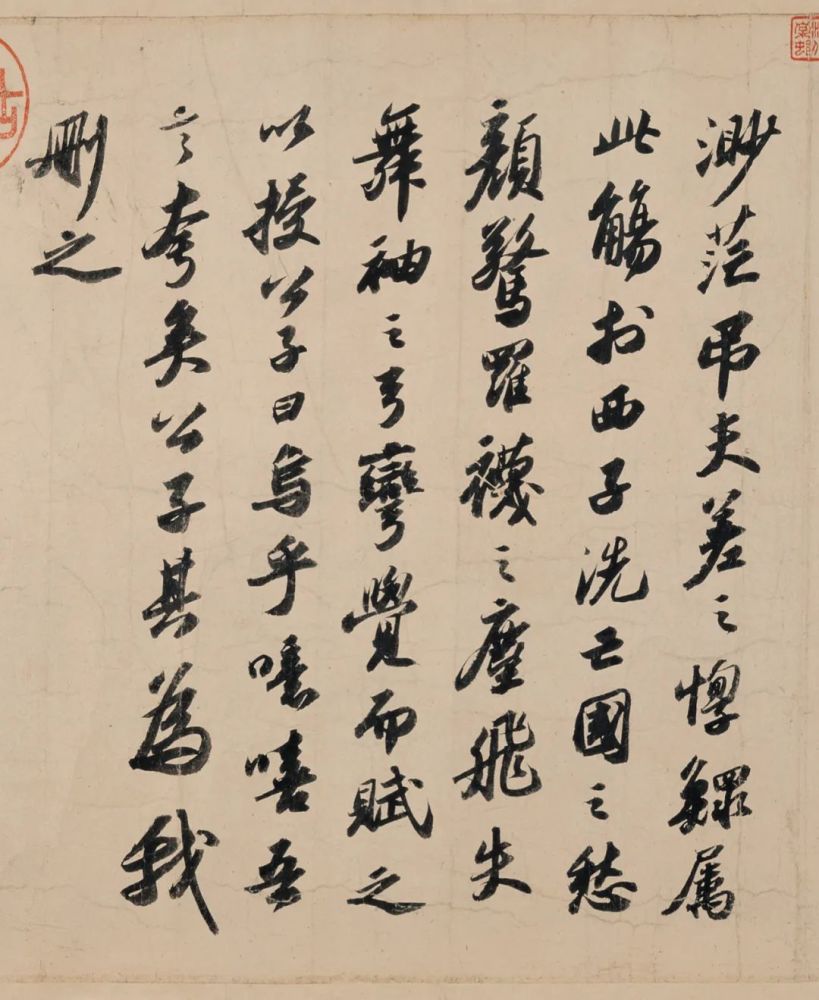 渺茫吊夫差之惸鰥属
此觴於西子洗亡國之愁
顏驚羅襪之塵飛失
舞袖之弓彎覺而賦之
以授公子曰烏乎噫嘻吾
言夸矣公子其為我
刪之